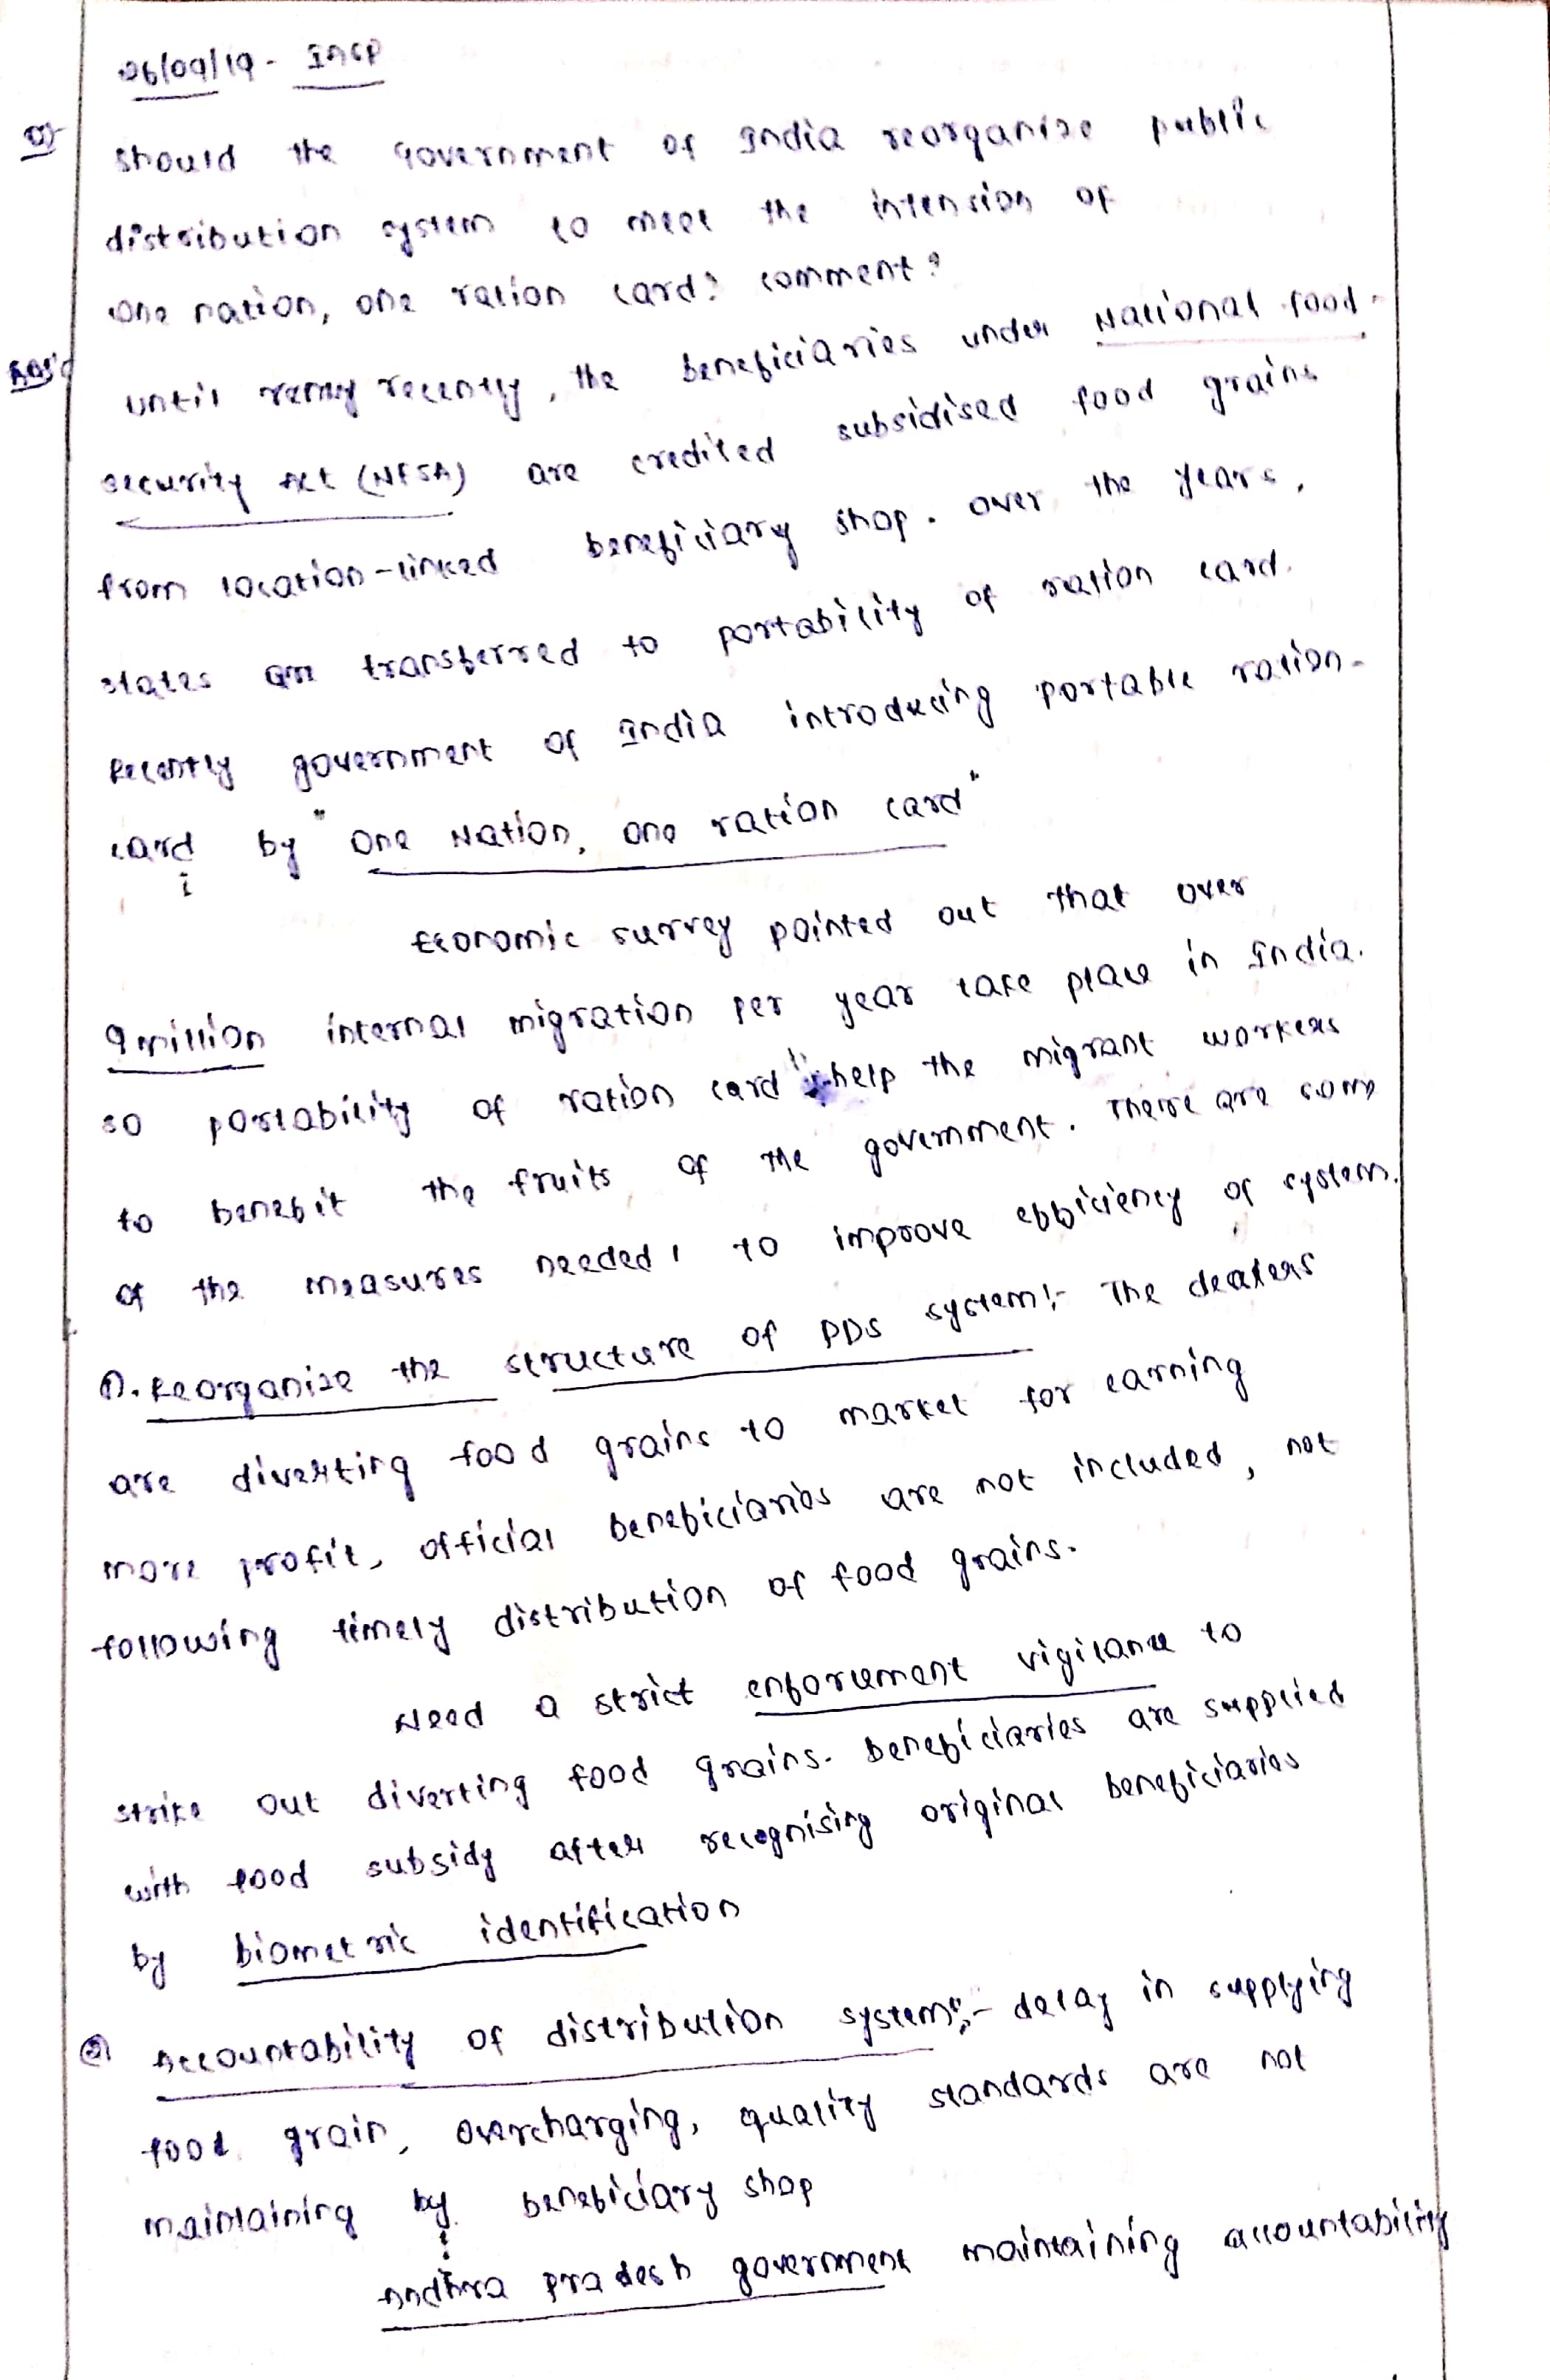 26/09/19 - INCP
Q) should the government of India reorganize public
distribution system to meet the intension of
one nation, one ration card? comment?
Ans:) until recently, the beneficiaries under National food
security Act (NFSA) are credited subsidised food grains
from location-linked beneficiary shop. over the years,
states are transferred to portability of ration card.
Recently government of India introducing portable ration-
card by "One Nation, one ration card"
Economic survey pointed out that over
9 million internal migration per year take place in India.
so portability of ration card help the migrant workers
to benefit the fruits of the government. There are some
of the measures needed to improve efficiency of system.
①. Reorganize the structure of PDS system:- The dealers
are diverting food grains to market for earning
more profit, official beneficiaries are not included, not
following timely distribution of food grains.
Need a strict enforcement vigilance to
strike out diverting food grains. Beneficiaries are supplied
with food subsidy after recognising original beneficiaries
by biometric identification
② Accountability of distribution system:- delay in supplying
food grain, overcharging, quality standards are not
maintaining by beneficiary shop
Andhra pradesh government maintaining accountability